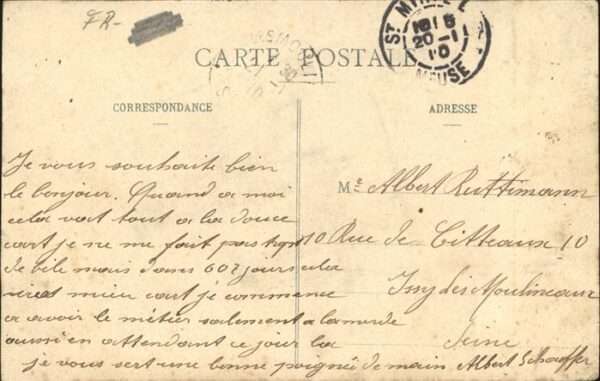 FR-
CARTE POSTALE
ST MIHIEL
1815
20-1
10
MEUSE
CORRESPONDANCE
ADRESSE
Je vous souhaite bien
le bonjour. Quand a moi
cela vat tout a la douce
cart je ne me fait pas trop
de bile mais dans 607 jours cela
mieu cart je commence
a avoir le métier salement a la merde
aussi en attendant ce jour la
je vous sert une bonne poignée de main Albert Schaeffer
Me Albert Ruttimann
10 Rue de Citteaux 10
Issy les Moulineaux
Seine